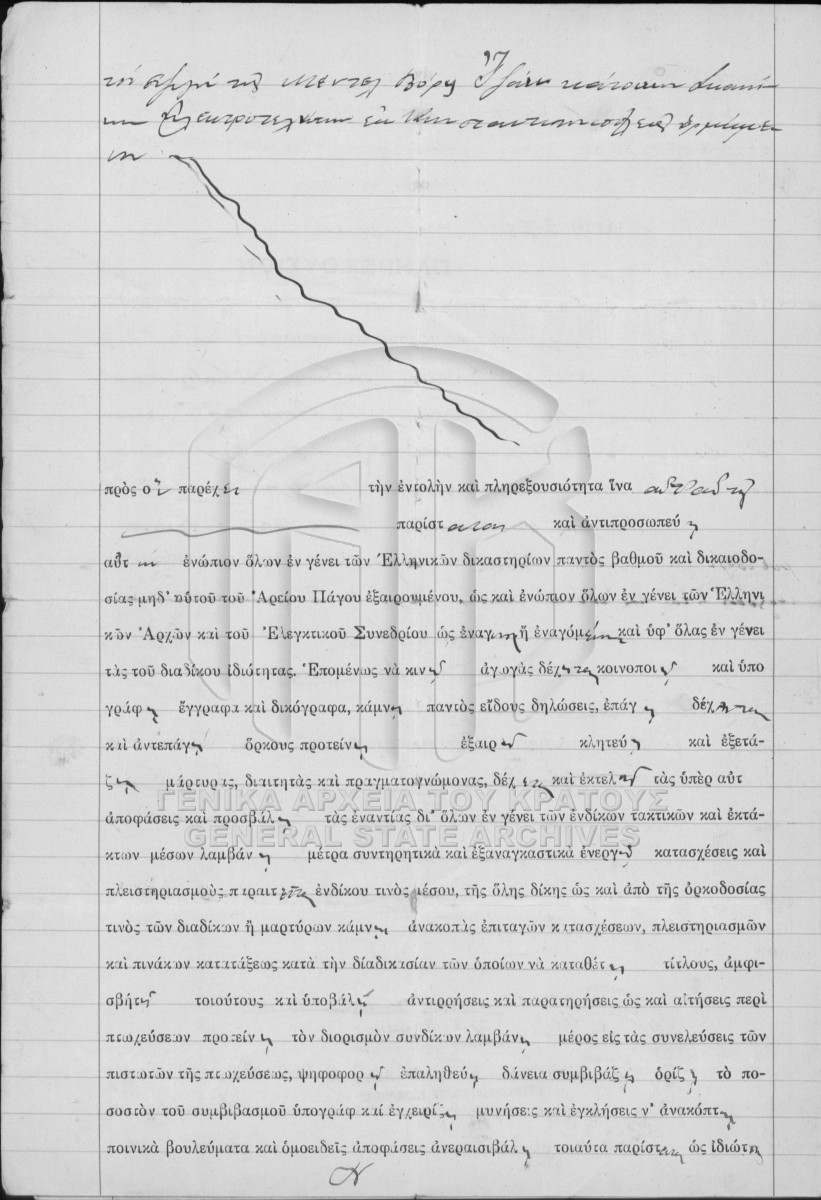 πρὸς ὃν παρέχει τὴν ἐντολὴν καὶ πληρεξουσιότητα ἵνα
παρίσταται καὶ ἀντιπροσωπεύῃ
αὐτ ἐνώπιον ὅλων ἐν γένει τῶν Ἑλληνικῶν δικαστηρίων παντὸς βαθμοῦ καὶ δικαιοδο-
σίας μηδ' αὐτοῦ τοῦ Ἀρείου Πάγου ἐξαιρουμένου, ὡς καὶ ἐνώπιον ὅλων ἐν γένει τῶν Ἑλληνι
κῶν Ἀρχῶν καὶ τοῦ Ἐλεγκτικοῦ Συνεδρίου ὡς ἐναγ ἢ ἐναγόμ καὶ ὑφ' ὅλας ἐν γένει
τὰς τοῦ διαδίκου ἰδιότητας. Ἑπομένως νὰ κινῇ ἀγωγὰς δέχηται κοινοποιῇ καὶ ὑπο
γράφῃ ἔγγραφα καὶ δικόγραφα, κάμνῃ παντὸς εἴδους δηλώσεις, ἐπάγῃ δέχηται
καὶ ἀντεπάγῃ ὅρκους προτείνῃ ἐξαιρῇ κλητεύῃ καὶ ἐξετά-
ζῃ μάρτυρας, διαιτητὰς καὶ πραγματογνώμονας, δέχηται καὶ ἐκτελῇ τὰς ὑπὲρ αὐτ
ΓΕΝΙΚΑ ΑΡΧΕΙΑ ΤΟΥ ΚΡΑΤΟΥΣ
ἀποφάσεις καὶ προσβάλῃ τὰς ἐναντίας δι' ὅλων ἐν γένει τῶν ἐνδίκων τακτικῶν καὶ ἐκτά-
GENERAL STATE ARCHIVES
κτων μέσων λαμβάνῃ μέτρα συντηρητικὰ καὶ ἐξαναγκαστικὰ ἐνεργῇ κατασχέσεις καὶ
πλειστηριασμοὺς παραιτῆται ἐνδίκου τινὸς μέσου, τῆς ὅλης δίκης ὡς καὶ ἀπὸ τῆς ὁρκοδοσίας
τινὸς τῶν διαδίκων ἢ μαρτύρων κάμνῃ ἀνακοπὰς ἐπιταγῶν κατασχέσεων, πλειστηριασμῶν
καὶ πινάκων κατατάξεως κατὰ τὴν διαδικασίαν τῶν ὁποίων νὰ καταθέτῃ τίτλους, ἀμφι-
σβητῇ τοιούτους καὶ ὑποβάλῃ ἀντιρρήσεις καὶ παρατηρήσεις ὡς καὶ αἰτήσεις περὶ
πτωχεύσεων προτείνῃ τὸν διορισμὸν συνδίκων λαμβάνῃ μέρος εἰς τὰς συνελεύσεις τῶν
πιστωτῶν τῆς πτωχεύσεως, ψηφοφορῇ ἐπαληθεύῃ δάνεια συμβιβάζῃ ὁρίζῃ τὸ πο-
σοστὸν τοῦ συμβιβασμοῦ ὑπογράφ καὶ ἐγχειρίζῃ μυνήσεις καὶ ἐγκλήσεις ν' ἀνακόπτῃ
ποινικὰ βουλεύματα καὶ ὁμοειδεῖς ἀποφάσεις ἀνεραισιβάλῃ τοιαύτα παρίσταται ὡς ἰδιώτῃ